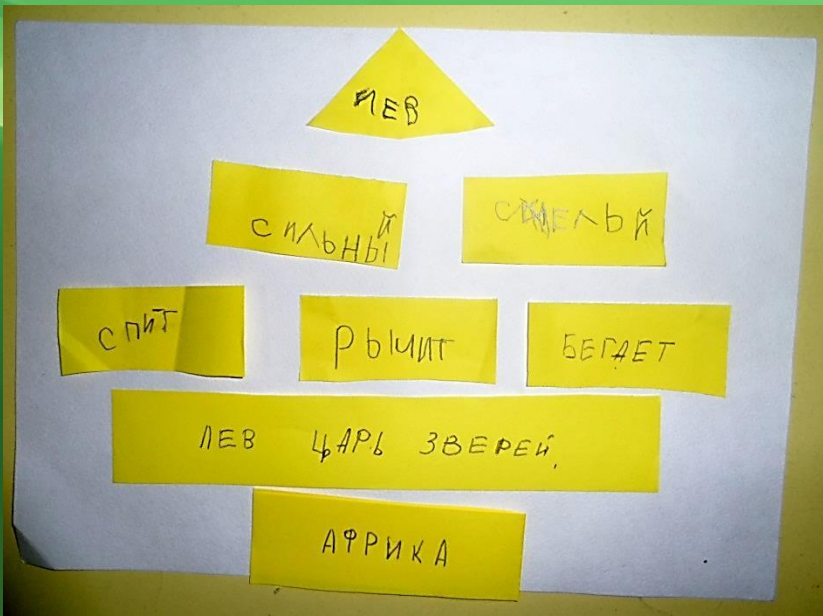 ЛЕВ
СИЛЬНЫЙ
СМЕЛЬЙ
СПИТ
РЫЧИТ
БЕГАЕТ
ЛЕВ ЦАРЬ ЗВЕРЕЙ.
АФРИКА